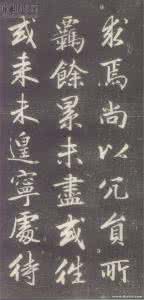 求焉尚以冗員所
羈餘累未盡或往
或來未遑寧處待